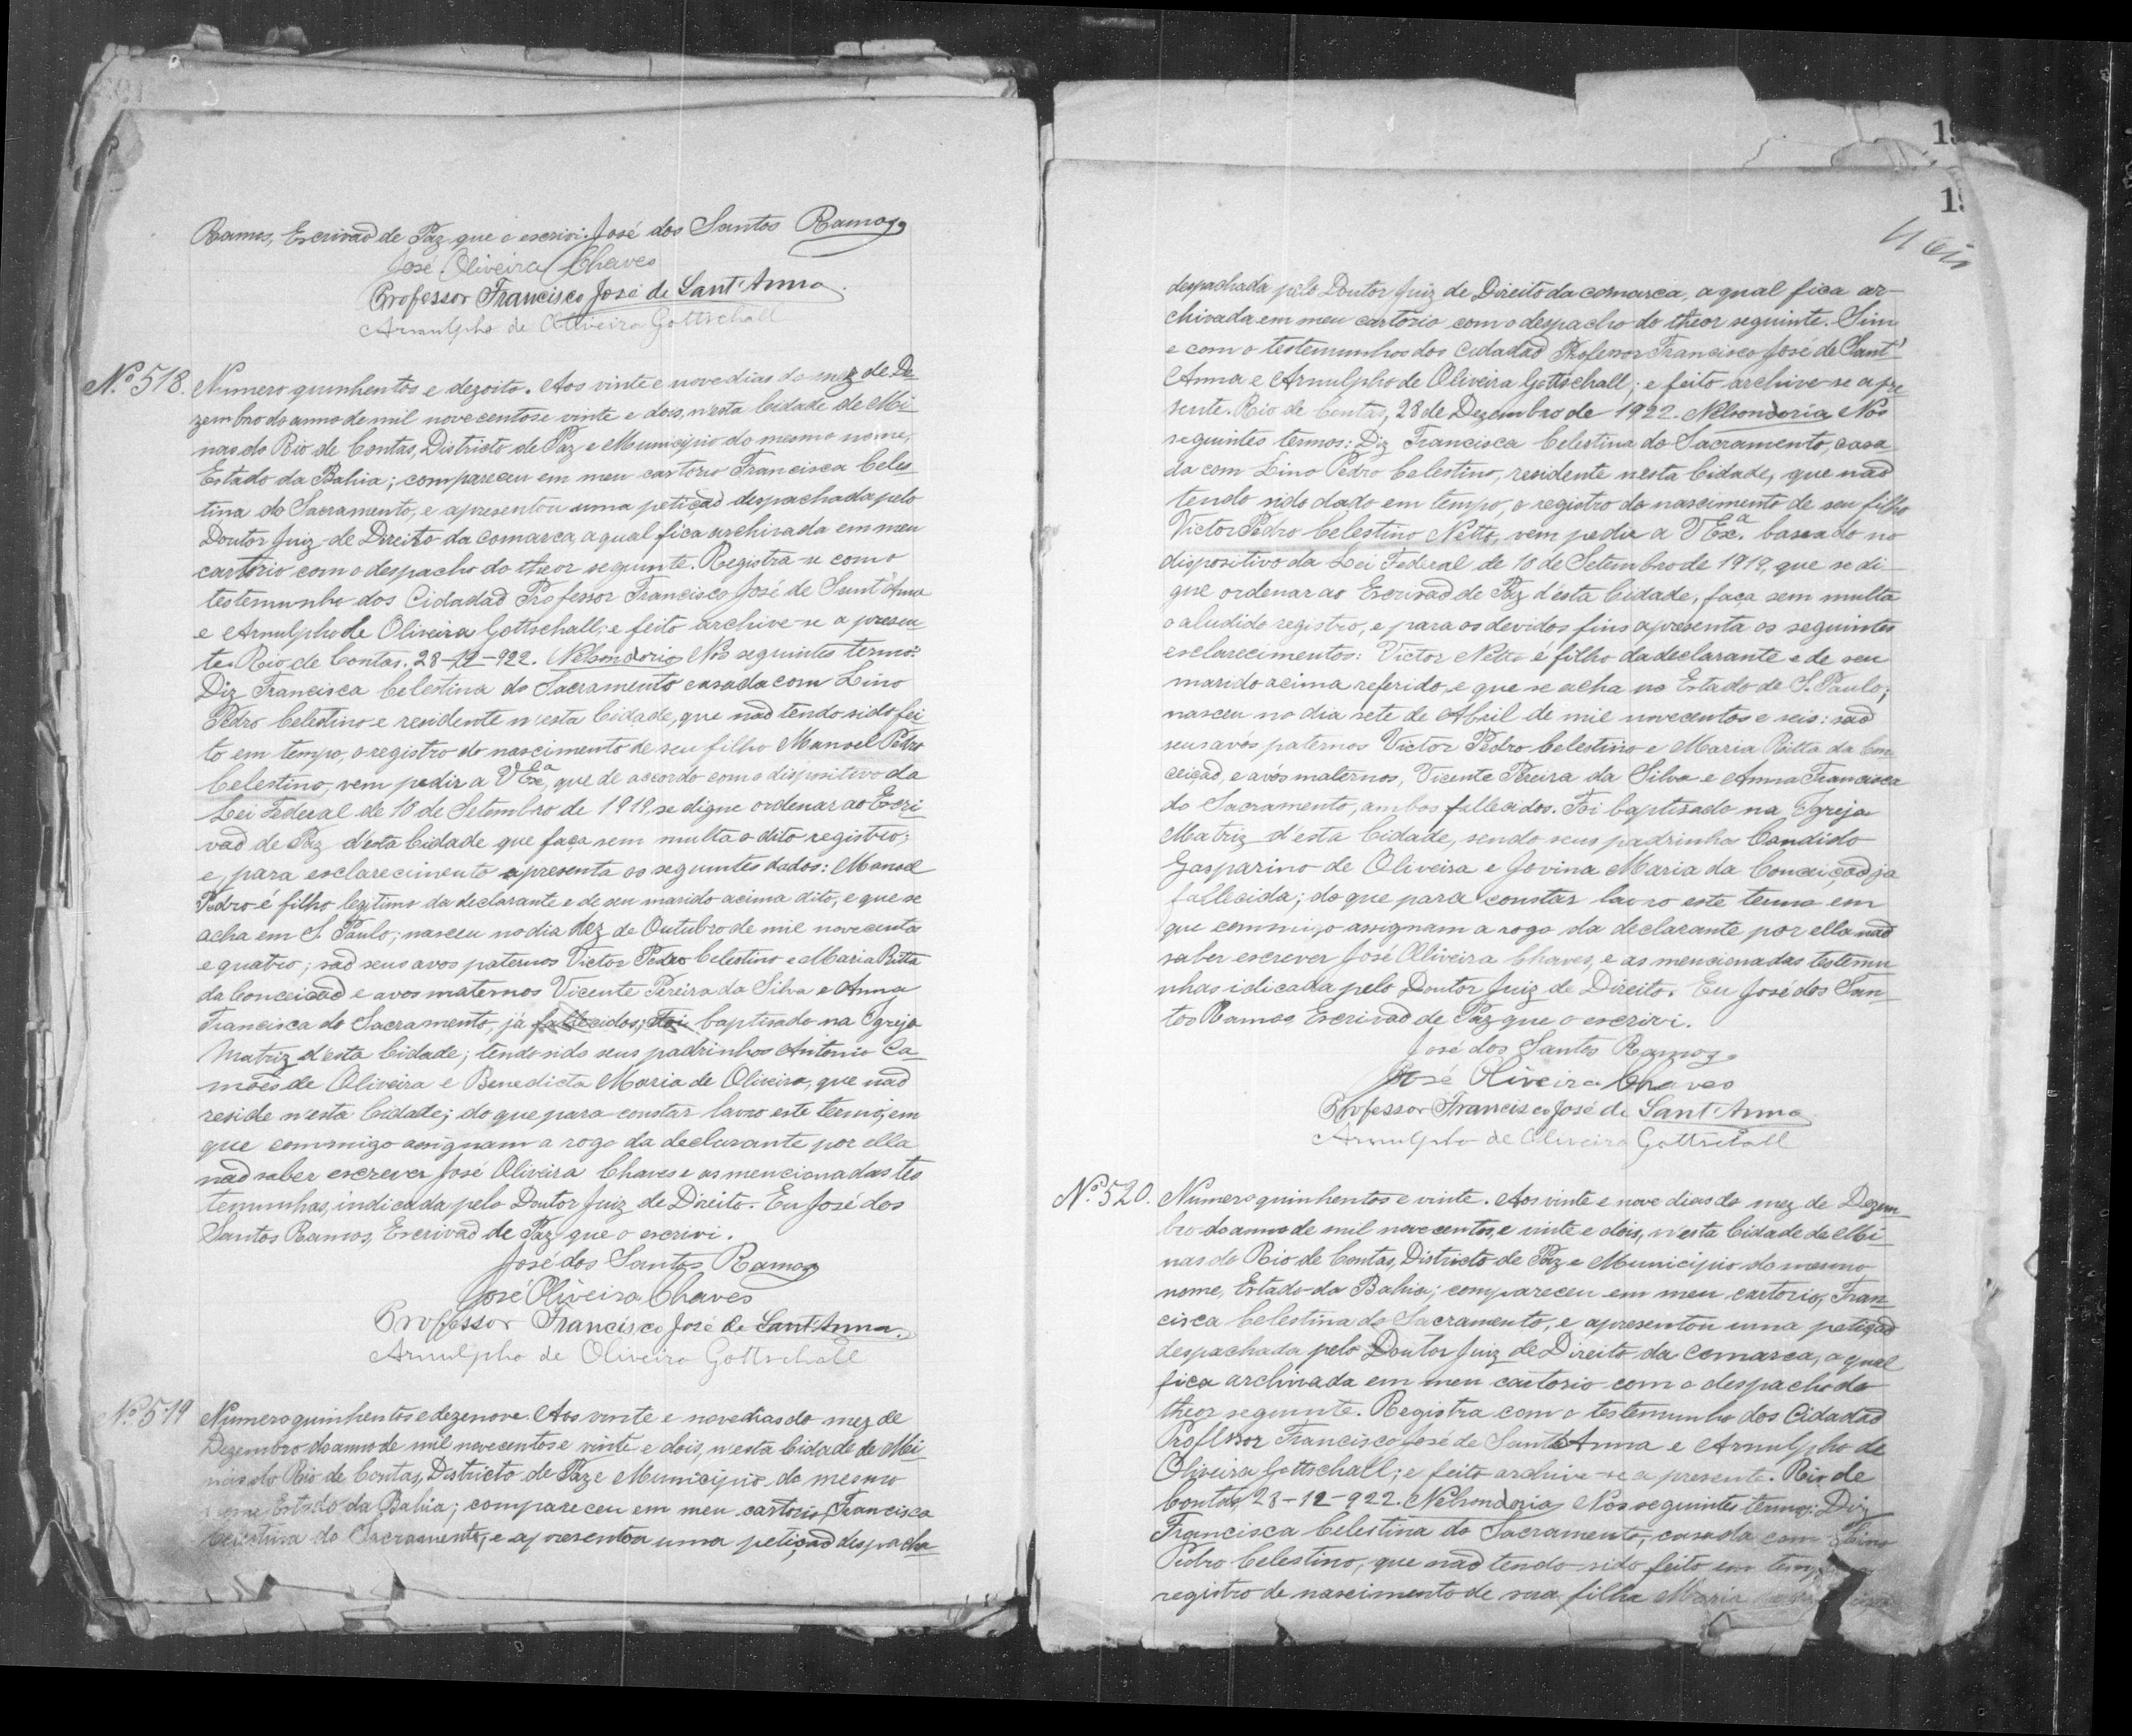 Ramos, Escrivaõ de Paz que o escrivi. José dos Santos Ramos
José Oliveira Chaves
Professor Francisco José de Sant'Anna.
Arnulpho de Oliveira Gottschall
Nº 518. Numero quinhentos e dezoito. Aos vinte e nove dias do mez de De-
zembro do anno de mil novecentos e vinte e dois, n'esta Cidade de Mi-
nas do Rio de Contas, Districto de Paz e Municipio do mesmo nome,
Estado da Bahia; compareceu em meu cartorio Francisca Celes-
tina do Sacramento, e apresentou uma petiçaõ despachada pelo
Doutor Juiz de Direito da comarca, a qual fica archivada em meu
cartorio com o despacho do theor seguinte. Registra-se com o
testemunho dos Cidadaõ Professor Francisco José de Sant'Anna
e Arnulpho de Oliveira Gottschall; e feito archive-se a presen-
te. Rio de Contas. 28-12-922. Nelson doria Nos seguintes termo:
Diz Francisca Celestina do Sacramento casada com Lino
Pedro Celestino e residente n'esta Cidade, que naõ tendo sido fei-
to em tempo, o registro do nascimento de seu filho Manoel Pedro
Celestino, vem pedir a VExª, que de accordo com o dispositivo da
Lei Federal de 10 de Setembro de 1919, se digne ordenar ao Escri-
vaõ de Paz d'esta Cidade que faça sem multa o dito registro;
e, para esclarecimento apresenta os seguintes dados: Manoel
Pedro é filho legitimo da declarante e de seu marido acima dito, e que se
acha em S. Paulo; nasceu no dia dez de Outubro de mil novecentos
e quatro; saõ seus avos paternos Victor Pedro Celestino e Maria Ritta
da Conceicaõ e avos maternos Vicente Pereira da Silva e Anna
Francisca do Sacramento, já fallecidos; Foi baptisado na Igreja
Matriz d'esta Cidade; tendo sido seus padrinhos Antonio Ca-
mões de Oliveira e Benedicta Maria de Oliveira, que naõ
reside n'esta Cidade; do que para constar lavro este termo, em
que commigo assignam a rogo da declarante por ella
naõ saber escrever José Oliveira Chaves e as mencionadas tes
temunhas, indicada pelo Doutor Juiz de Direito. Eu José dos
Santos Ramos, Escrivaõ de Paz que o escrivi.
José dos Santos Ramos
José Oliveira Chaves
Professor Francisco José de Sant'Anna.
Arnulpho de Oliveira Gottschall
Nº 519 Numero quinhentos e dezenove. Aos vinte e nove dias do mez de
Dezembro do anno de mil novecentos e vinte e dois, n'esta Cidade de Mi-
nas do Rio de Contas, Districto de Paz e Municipio do mesmo
nome, Estado da Bahia; compareceu em meu cartorio, Francisca
Celestina do Sacramento, e apresentou uma petiçaõ despacha-
despachada pelo Doutor Juiz de Direito da comarca, a qual fica ar-
chivada em meu cartorio com o despacho do theor seguinte. Sim
e com o testemunhos dos Cidadaõ Professor Francisco José de Sant'
Anna e Arnulpho de Oliveira Gottschall; e feito archive-se a pre
sente. Rio de Contas, 28 de Dezembro de 1922. Nelson doria Nos
seguintes termos: Diz Francisca Celestina do Sacramento, casa
da com Lino Pedro Celestino, residente n'esta Cidade, que naõ
tendo sido dado em tempo, o registro do nascimento de seu filho
Victor Pedro Celestino Netto, vem pedir a VExª. baseado no
dispositivo da Lei Federal de 10 de Setembro de 1919, que se di-
gne ordenar ao Escrivaõ de Paz d'esta Cidade, faça sem multa
o aludido registro, e para os devidos fins apresenta os seguintes
esclarecimentos: Victor Netto é filho da declarante e de seu
marido acima referido, e que se acha no Estado de S. Paulo;
nasceu no dia sete de Abril de mil novecentos e seis: saõ
seus avós paternos Victor Pedro Celestino e Maria Ritta da Con
ceiçaõ, e avós maternos, Vicente Pereira da Silva e Anna Francisca
do Sacramento, ambos fallecidos. Foi baptisado na Igreja
Matriz d'esta Cidade, sendo seus padrinho Candido
Gasparino de Oliveira e Jovina Maria da Conceiçaõ já
fallecida; do que para constar lavro este termo em
que commigo assignam a rogo da declarante por ella naõ
saber escrever José Oliveira Chaves, e as mencionadas testemu
nhas idicada pelo Doutor Juiz de Direito. Eu José dos San-
tos Ramos Escrivaõ de Paz que o escrivi.
José dos Santos Ramos
José Oliveira Chaves
Professor Francisco José de Sant'Anna
Arnulpho de Oliveira Gottschall
Nº 520. Numero quinhentos e vinte. Aos vinte e nove dias do mez de Dezem-
bro do anno de mil novecentos, e vinte e dois, n'esta Cidade de Mi-
nas do Rio de Contas, Districto de Paz e Municipio do mesmo
nome, Estado da Bahia; compareceu em meu cartorio, Fran-
cisca Celestina do Sacramento, e apresentou uma petiçaõ
despachada pelo Doutor Juiz de Direito da comarca, a qual
fica archivada em meu cartorio com o despacho do
theor seguinte. Registra com o testemunho dos Cidadaõ
Professor Francisco José de Sant'Anna e Arnulpho de
Oliveira Gottschall; e feito archive-se a presente. Rio de
Contas, 28-12-922. Nelson doria Nos seguintes termos: Diz
Francisca Celestina do Sacramento, casada com Lino
Pedro Celestino, que naõ tendo sido feito em
registro de nascimento de sua filha Maria